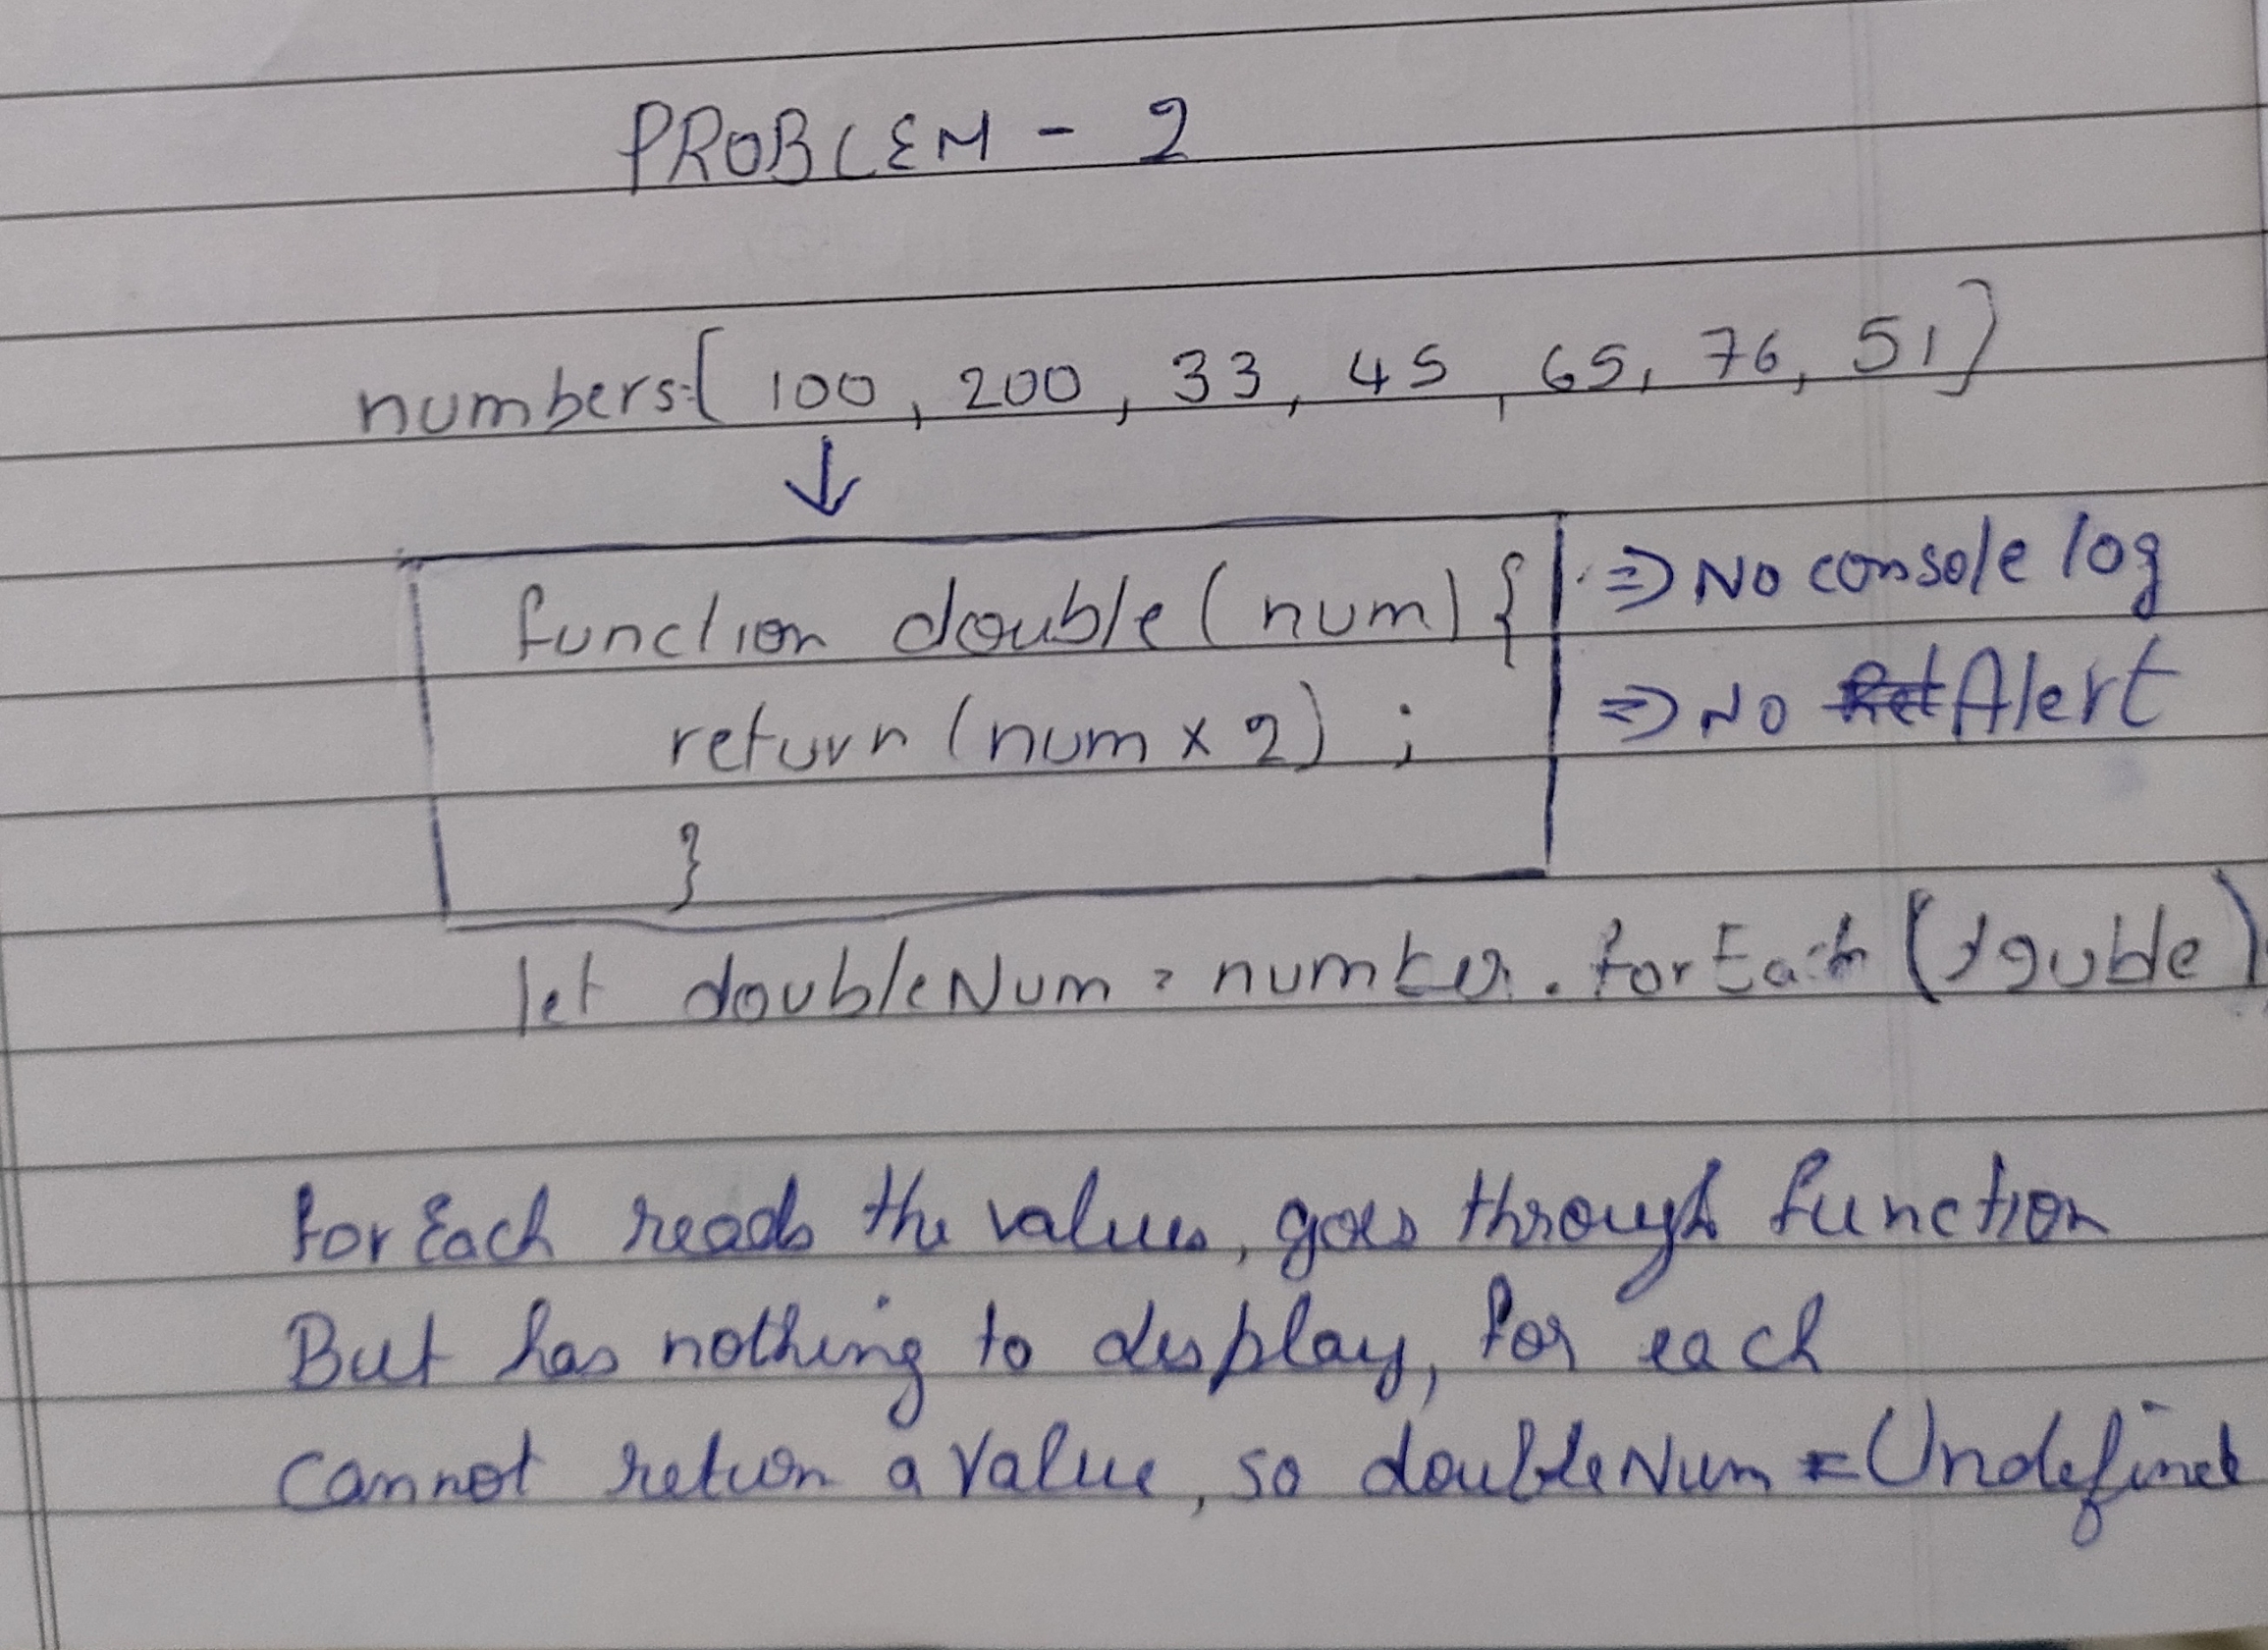 PROBLEM - 2
numbers=[ 100, 200, 33, 45, 65, 76, 51]
↓
function double (num) { ⇒ No console log
return (num x 2) ; ⇒ No Alert
}
let doubleNum = number.forEach (double)
forEach reads the values, goes through function
But has nothing to display, for each
cannot return a value, so doubleNum = Undefined